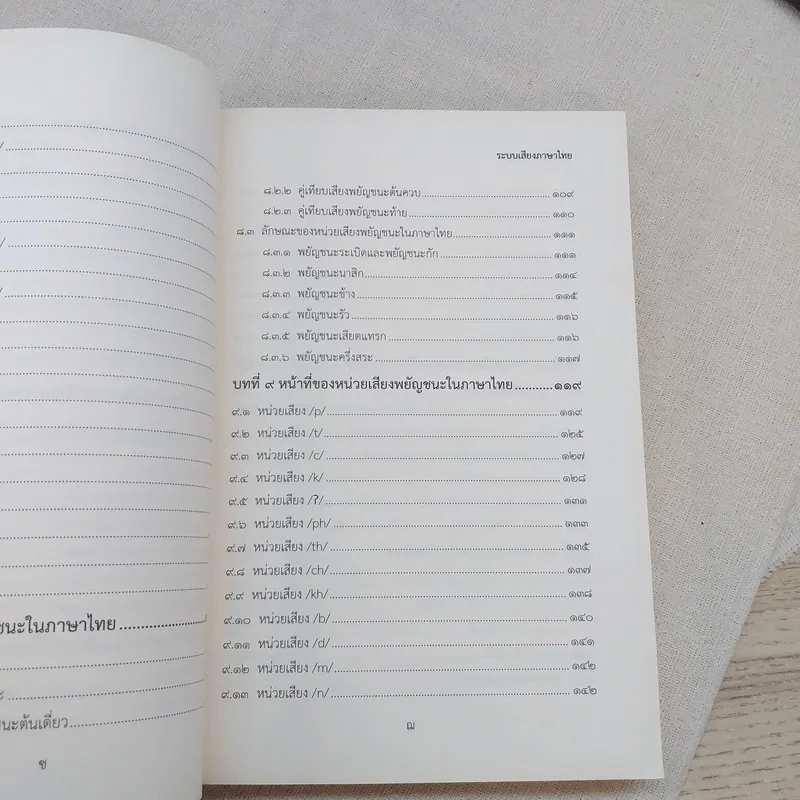 /
/
/
ชนะในภาษาไทย
ะ
นะต้นเดี่ยว
ช
ระบบเสียงภาษาไทย
๘.๒.๒ คู่เทียบเสียงพยัญชนะต้นควบ ๑๐๙
๘.๒.๓ คู่เทียบเสียงพยัญชนะท้าย ๑๑๐
๘.๓ ลักษณะของหน่วยเสียงพยัญชนะในภาษาไทย ๑๑๑
๘.๓.๑ พยัญชนะระเบิดและพยัญชนะกัก ๑๑๑
๘.๓.๒ พยัญชนะนาสิก ๑๑๔
๘.๓.๓ พยัญชนะข้าง ๑๑๕
๘.๓.๔ พยัญชนะรัว ๑๑๖
๘.๓.๕ พยัญชนะเสียดแทรก ๑๑๖
๘.๓.๖ พยัญชนะครึ่งสระ ๑๑๗
บทที่ ๙ หน้าที่ของหน่วยเสียงพยัญชนะในภาษาไทย ๑๑๙
๙.๑ หน่วยเสียง /p/ ๑๑๙
๙.๒ หน่วยเสียง /t/ ๑๒๕
๙.๓ หน่วยเสียง /c/ ๑๒๗
๙.๔ หน่วยเสียง /k/ ๑๒๘
๙.๕ หน่วยเสียง /ʔ/ ๑๓๑
๙.๖ หน่วยเสียง /ph/ ๑๓๓
๙.๗ หน่วยเสียง /th/ ๑๓๕
๙.๘ หน่วยเสียง /ch/ ๑๓๗
๙.๙ หน่วยเสียง /kh/ ๑๓๘
๙.๑๐ หน่วยเสียง /b/ ๑๔๐
๙.๑๑ หน่วยเสียง /d/ ๑๔๑
๙.๑๒ หน่วยเสียง /m/ ๑๔๒
๙.๑๓ หน่วยเสียง /n/ ๑๔๒
ฌ